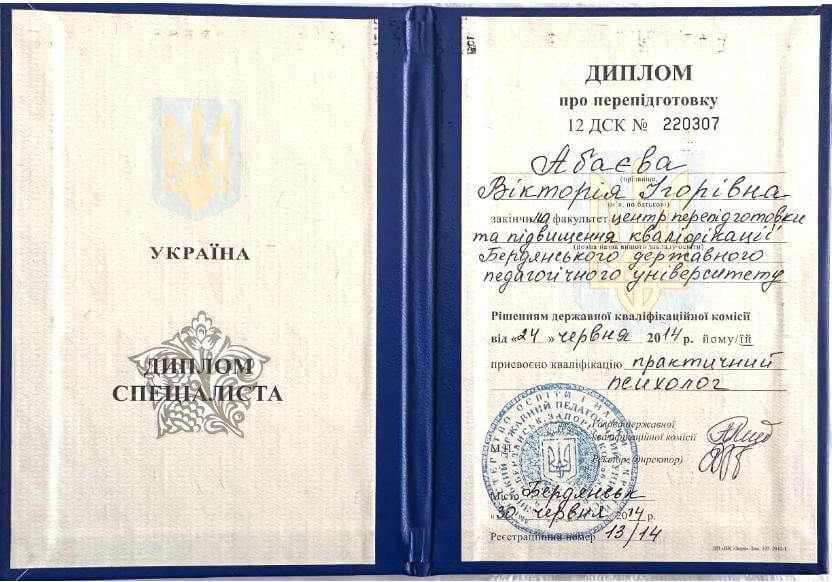 УКРАЇНА
ДИПЛОМ
СПЕЦІАЛІСТА
ДИПЛОМ
про перепідготовку
12 ДСК № 220307
Абаєва
(прізвище,
Вікторія Ігорівна
ім'я, по батькові)
закінчила факультет центр перепідготовки
та підвищення кваліфікації
(повна назва вищого закладу освіти)
Бердянського державного
педагогічного університету
Рішенням державної кваліфікаційної комісії
від «24» червня 2014 р. йому/їй
присвоєно кваліфікацію практичний
психолог
Голова державної
кваліфікаційної комісії
М.П.
Ректор (директор)
Місто Бердянськ
«30» червня 2014 р.
Реєстраційний номер 13/14